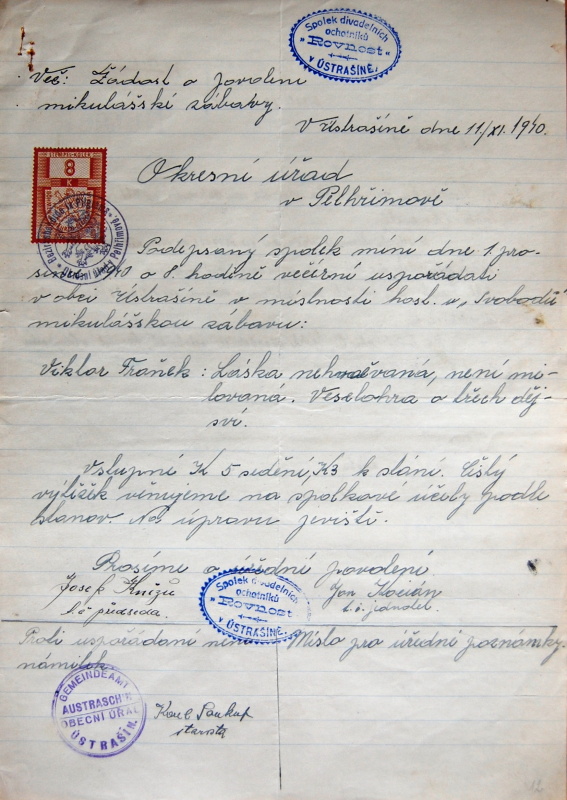 Spolek divadelních
ochotníků
„Rovnost“
v ÚSTRAŠÍNĚ,
Věc: Žádost o povolení
mikulášské zábavy.
V Ústrašíně dne 11/XI. 1940.
8
K
Okresní úřad
v Pelhřimově
Podepsaný spolek míní dne 1. pro-
since 1940 o 8. hodině večerní uspořádati
v obci Ústrašíně v místnosti host. u „Svobodů
mikulášskou zábavu:
Viktor Traňek: Láska nehněvaná, není mi-
lovaná. Veselohra o třech děj-
ství.
Vstupné K 5 sedění, K3 k stání. Čistý
výtěžek věnujeme na spolkové účely podle
stanov. Na úpravu jeviště.
Prosíme o úřední povolení
Josef
t.č. předseda.
Jan Kocián
t.č. jednatel.
Spolek divadelních
ochotníků
„Rovnost“
v ÚSTRAŠÍNĚ,
Proti uspořádání není
námitek
Místo pro úřední poznámky.
GEMEINDEAMT
AUSTRASCHIN
OBECNÍ ÚŘAD
ÚSTRAŠÍN.
Karel Soukup
starosta
12